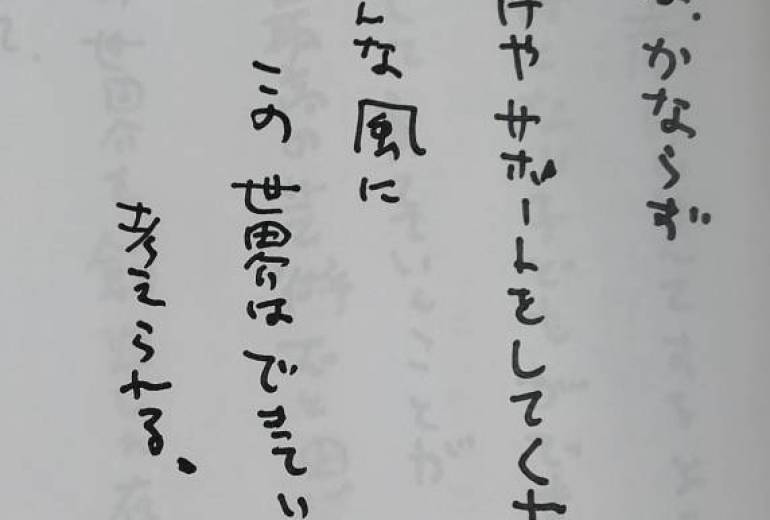 かならず
やサポートをしてくナ
んな風に
この世界はできてい
考えられる。